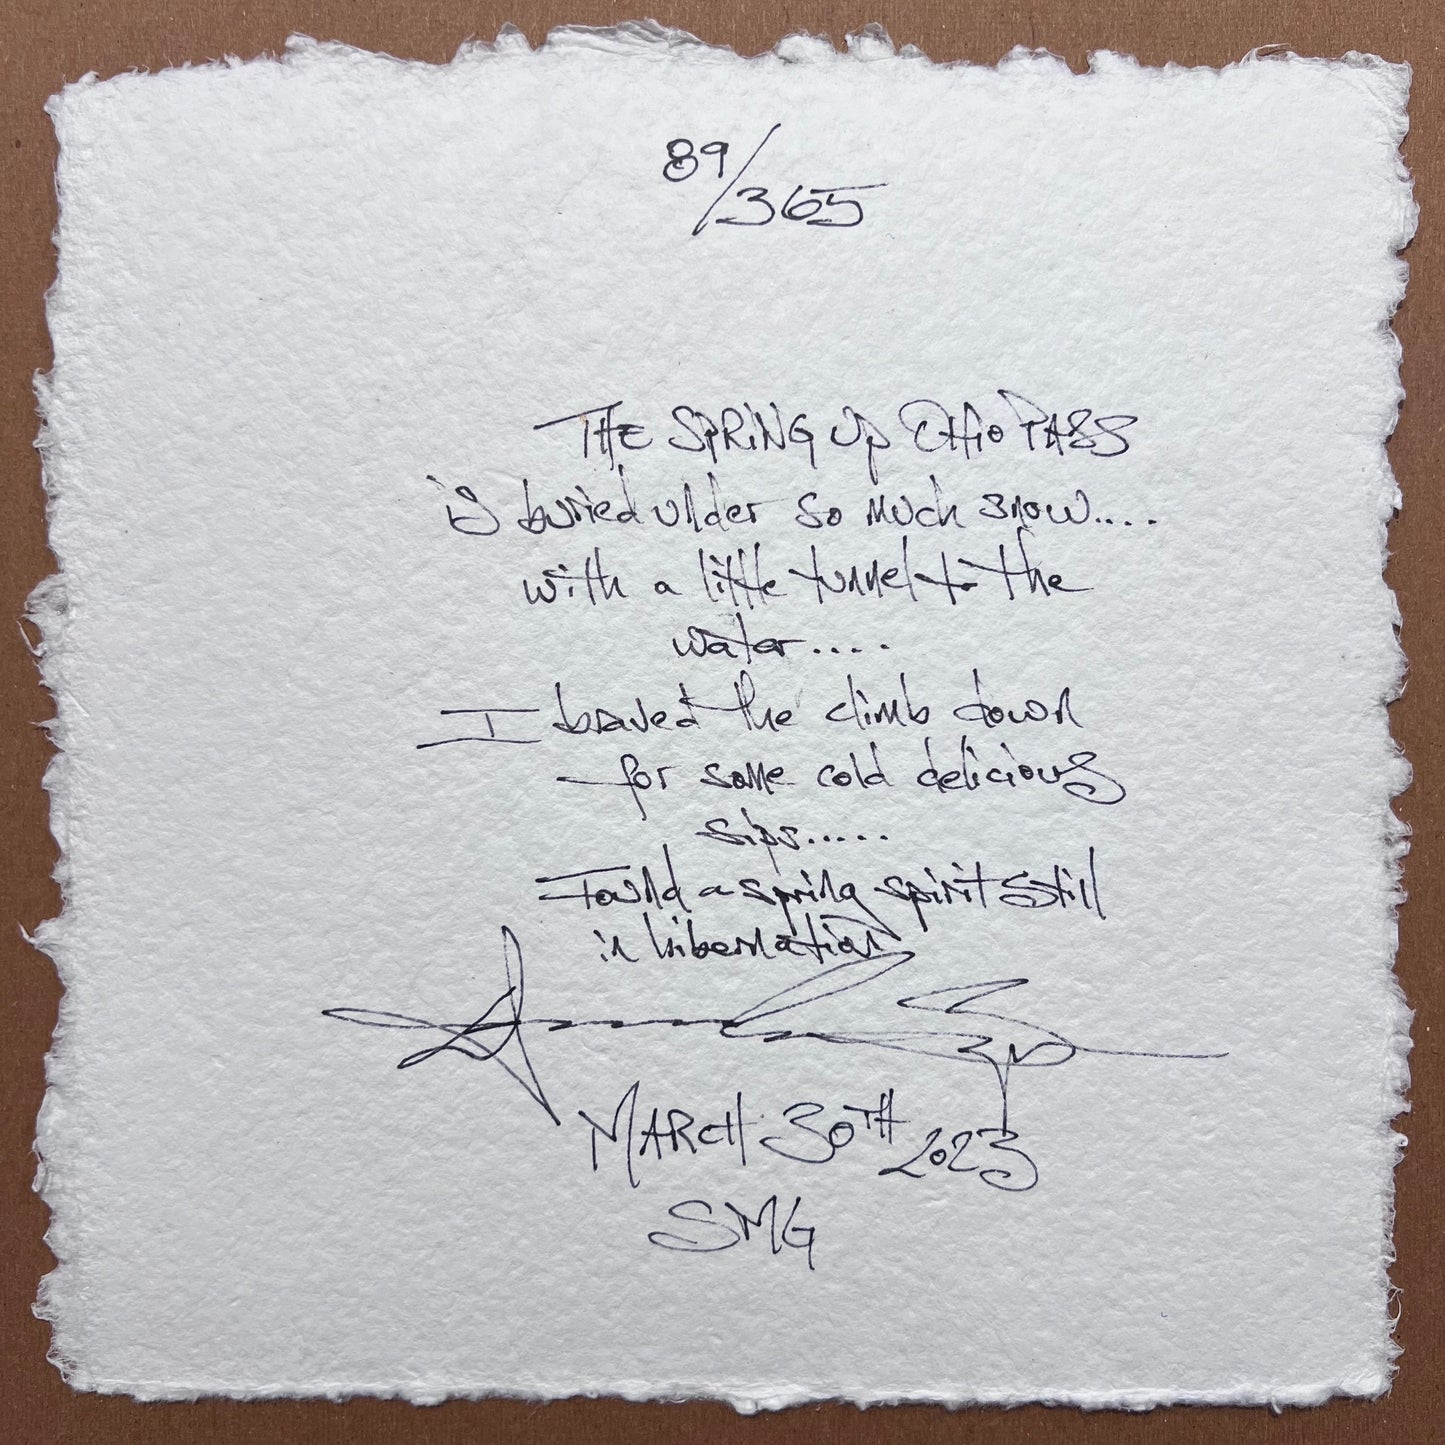 89/365
THE SPRING up Ohio PASS
is buried under so much snow....
with a little tunnel to the
water....
I braved the climb down
for some cold delicious
sips.....
Found a spring spirit still
in hibernation
MARCH 30TH 2023
SMG